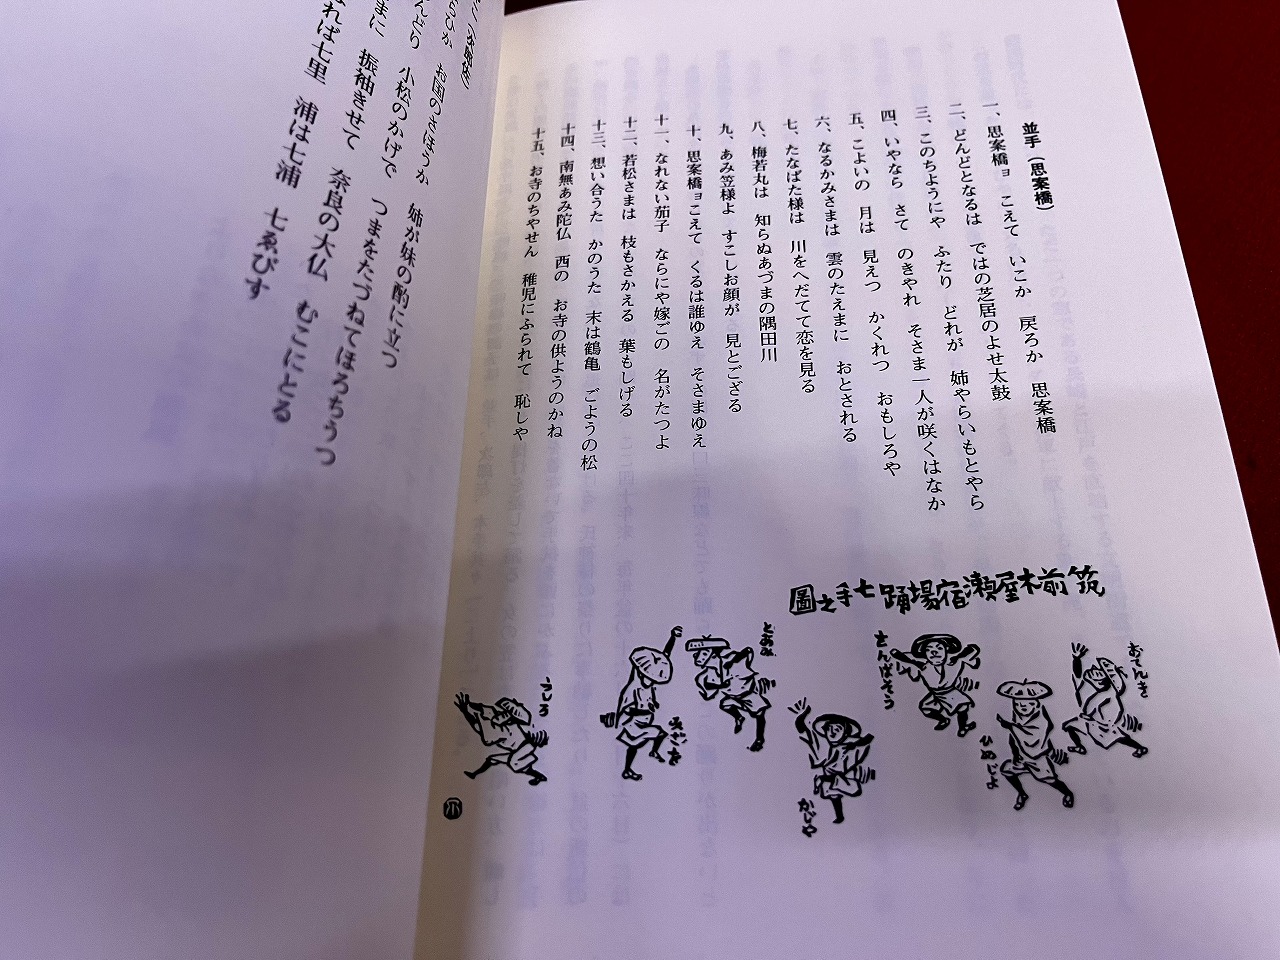 並手（思案橋）
一、思案橋ョ　こえて　いこか　戻ろか　思案橋
二、どんどとなるは　ではの芝居のよせ太鼓
三、このちようにや　ふたり　どれが　姉やらいもとやら
四、いやなら　さて　のきやれ　そさま一人が咲くはなか
五、こよいの　月は　見えつ　かくれつ　おもしろや
六、なるかみさまは　雲のたえまに　おとされる
七、たなばた様は　川をへだてて恋を見る
八、梅若丸は　知らぬあづまの隅田川
九、あみ笠様よ　すこしお顔が　見とござる
十、思案橋ョこえて　くるは誰ゆえ　そさまゆえ
十一、なれない茄子　ならにや嫁ごの　名がたつよ
十二、若松さまは　枝もさかえる　葉もしげる
十三、想い合うた　かのうた　末は鶴亀　ごようの松
十四、南無あみ陀仏　西の　お寺の供ようのかね
十五、お寺のちやせん　稚児にふられて　恥しや
筑前木屋瀬宿場踊七手之圖
おてんき
ひめじよ
さんばそう
かじや
とあみ
うしろ
らひか　お国のさほうか　姉が妹の酌に立つ
んどり　小松のかげで　つまをたづねてほろちうつ
まに　振袖きせて　奈良の大仏　むこにとる
れば七里　浦は七浦　七ゑびす